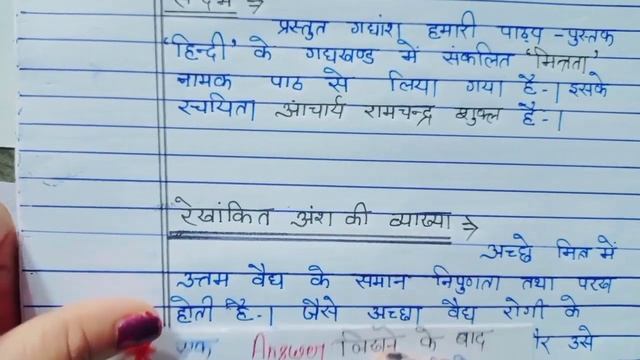 संदर्भ ⇒
प्रस्तुत गद्यांश हमारी पाठ्य - पुस्तक
'हिन्दी' के गद्यखण्ड में संकलित 'मित्रता'
नामक पाठ से लिया गया है - । इसके
रचयिता आचार्य रामचन्द्र शुक्ल है - ।
रेखांकित अंश की व्याख्या ⇒
अच्छे मित्र में
उत्तम वैद्य के समान निपुणता तथा परख
होती है - । जैसे अच्छा वैद्य रोगी के
Answer लिखने के बाद
उसे